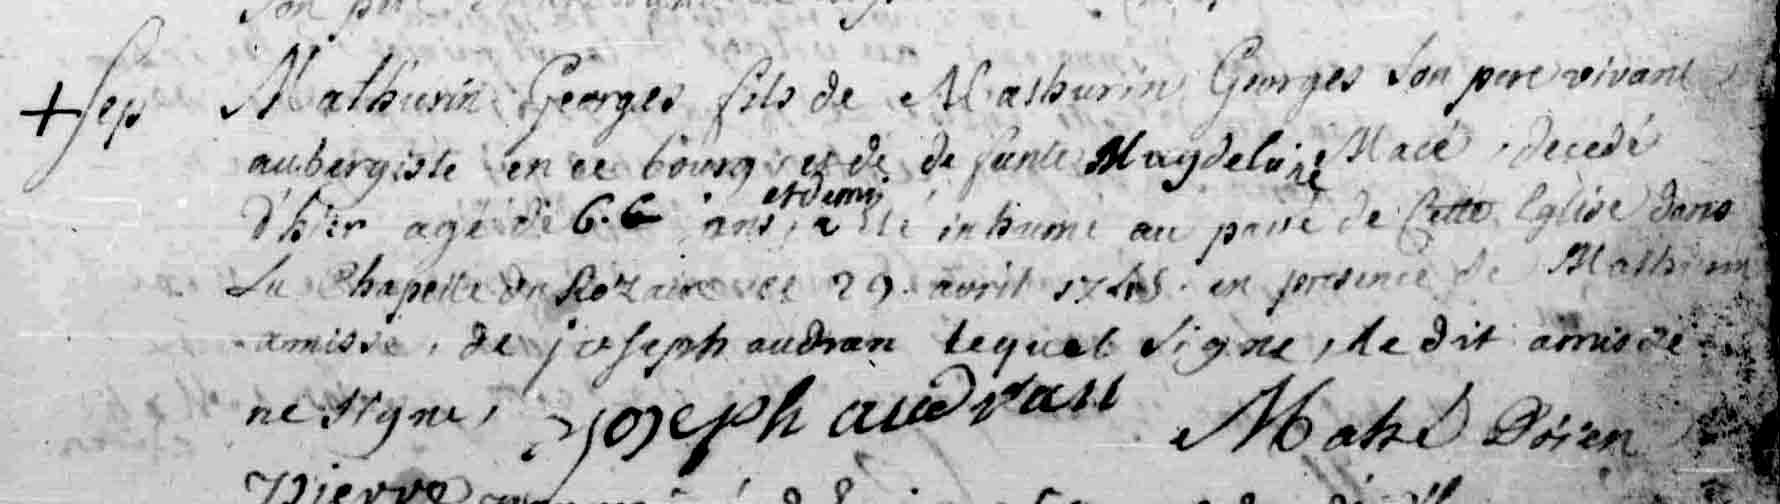 son pere
+ Sep Mathurin Georges fils de Mathurin Georges son pere vivant
aubergiste en ce bourg et de de funte Magdelaine Macé, decedé
d'hier agé de 6.6 ans et demy, a été inhumé au pavé de Cette Eglise dans
La Chapelle du Rozaire ce 29. avril 1748. en presence de Mathurin
amisse, de joseph audran lequel signe, le dit amisse
ne signe,
joseph audran Mahé Doïen
Pierre